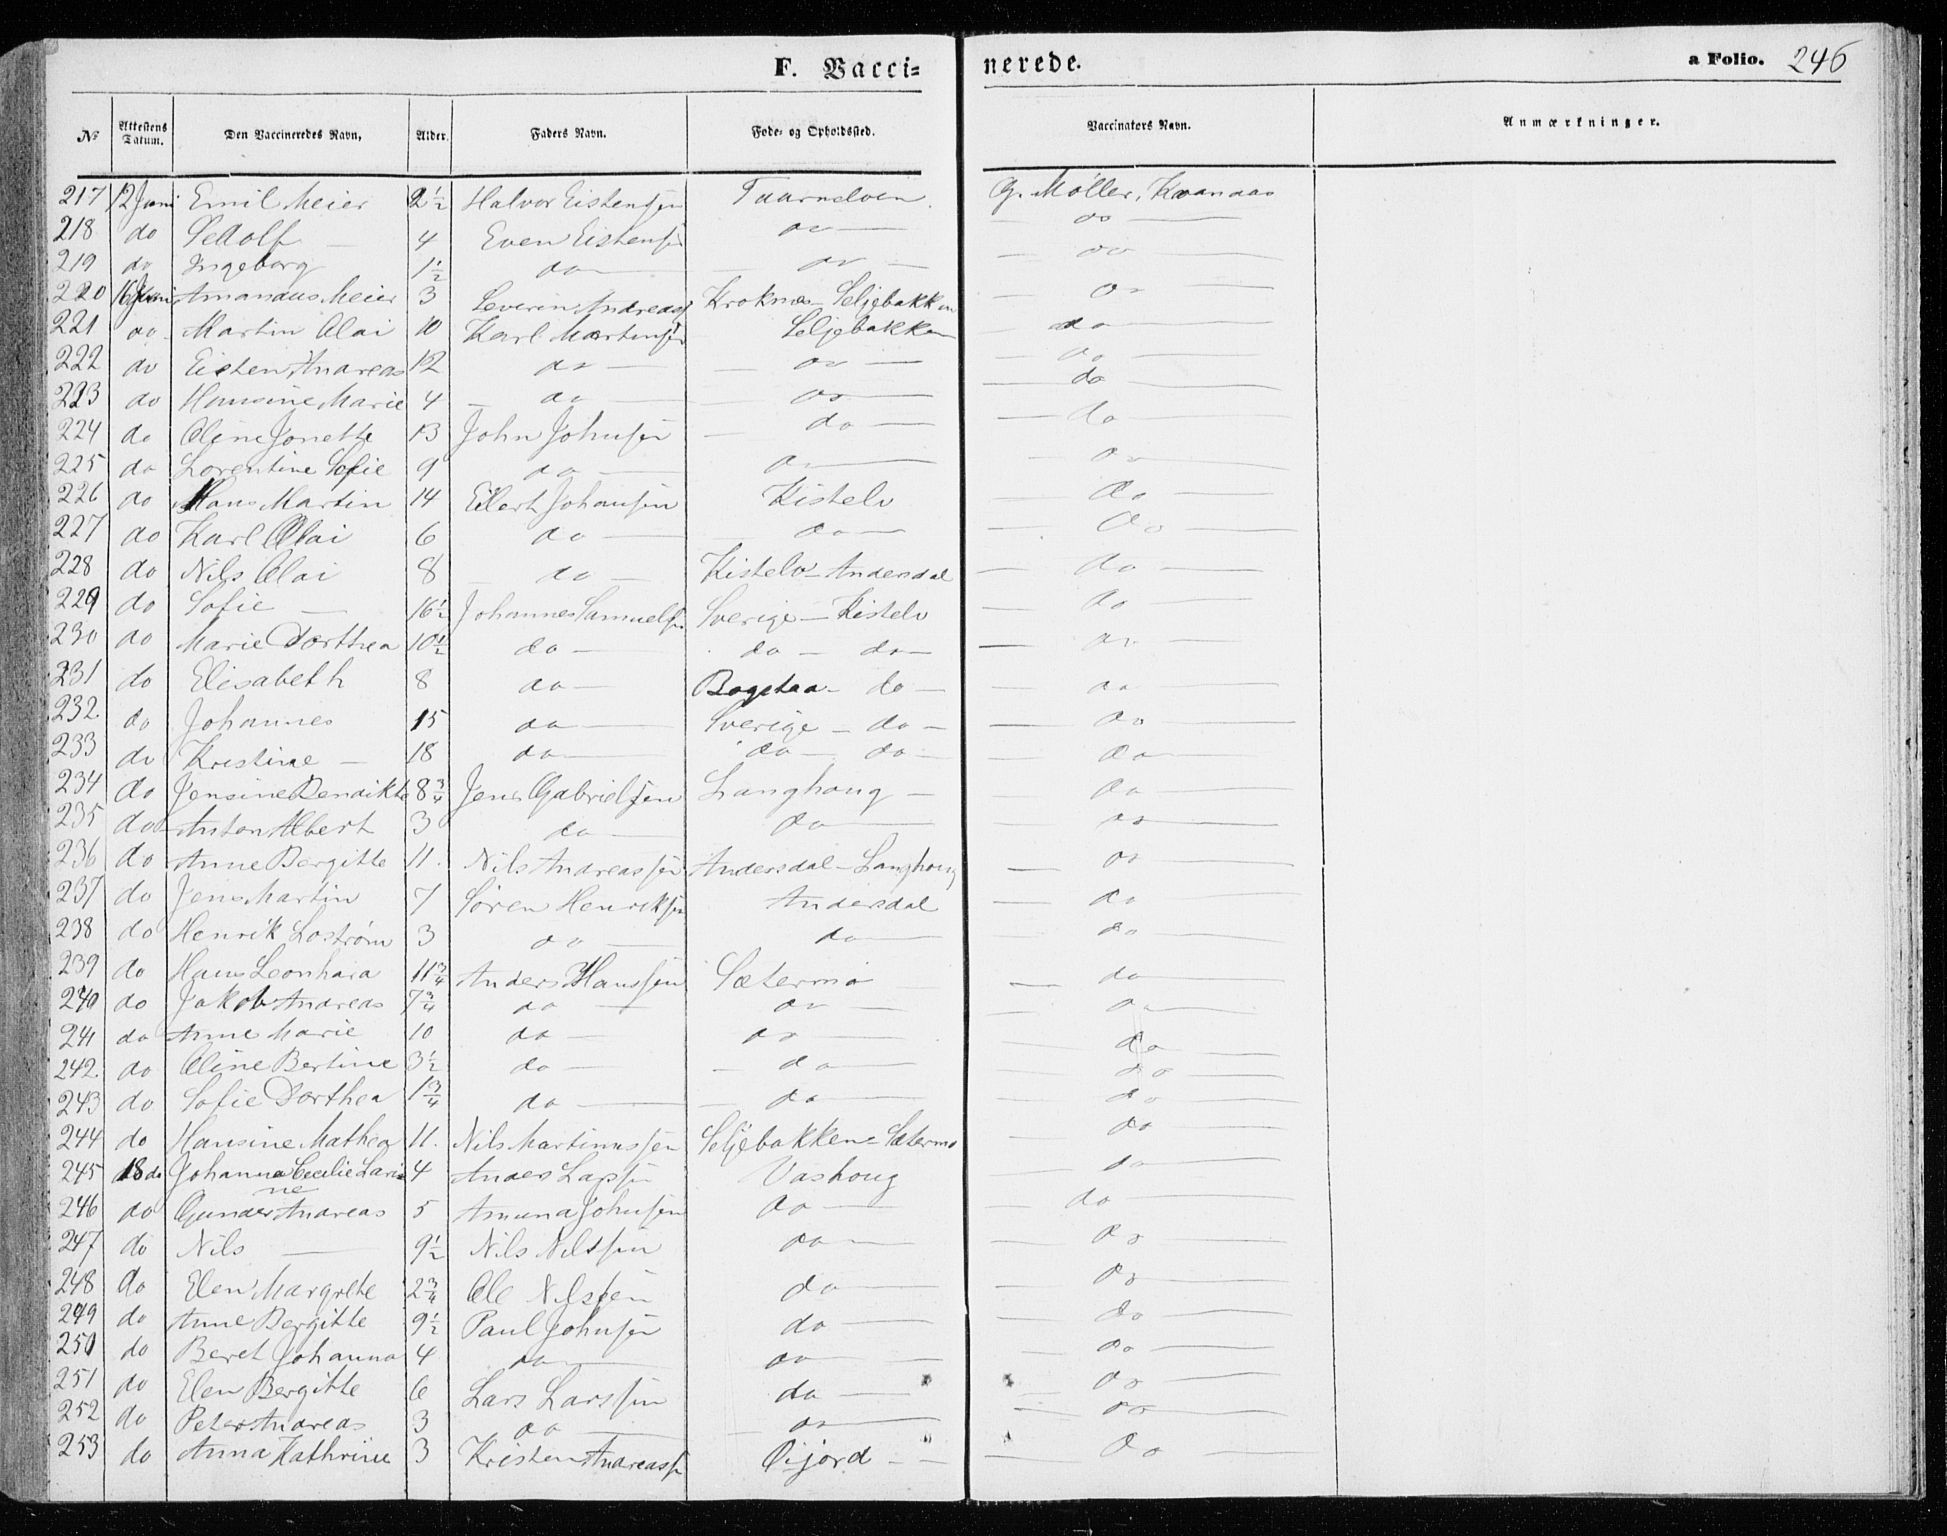 F. Vacci-
nerede.
a Folio. 246
No Attestens Datum. Den Vaccineredes Navn, Alder. Faders Navn. Føde- og Opholdssted. Vaccinators Navn. Anmærkninger.
217 12 Juni Emil Meier 2½ Halvor Eistensen Taarnelven. G. Møller, Kvanaas
218 do Adolf — 4 Even Eistensen do — do —
219 do Ingeborg 1½ do — do — do —
220 16 Juni Amandus Meier 3 Severin Andreass Kroknæs - Seljebakken do —
221 do Martin Olai 10 Karl Martensen Seljebakken do —
222 do Eisten Andreas 12 do — do — do —
223 do Hansine Marie 4 do — do — do —
224 do Oline Jonette 13 John Johnsen do — do —
225 do Lorentine Sofie 9 do — do — do —
226 do Hans Martin 14 Eilert Johansen Kistelv do —
227 do Karl Olai 6 do — do — do —
228 do Nils Olai 8 do — Kistelv - Andersdal do —
229 do Sofie — 16½ Johannes Samuels. Sverige - Kistelv do —
230 do Marie Dorthea 10½ do — do — do — do —
231 do Elisabeth 8 do — Bogstaa - do — do —
232 do Johannes 15 do — Sverige - do — do —
233 do Kristine — 18 do — do — do — do —
234 do Jensine Bendikte 8¾ Jens Gabrielsen Langhoug — do —
235 do Anton Albert 3 do — do — do —
236 do Anne Bergitte 11. Nils Andreassen Andersdal - Langhoug do —
237 do Jens Martin 7 Søren Henriksen Andersdal do —
238 do Henrik Lostrøm 3 do — do — do —
239 do Hans Leonhard 11¾ Anders Hanssen Sætermo do —
240 do Jakob Andreas 7¾ do — do — do —
241 do Anne Marie 10 do — do — do —
242. do Oline Bertine 3½ do — do — do —
243 do Sofie Dorthea 1¾ do — do — do —
244 do Hansine Mathea 11. Nils Martinussen Seljebakken - Sætermo do —
245 18 do Johanna Cecilie Larine 4 Anders Larssen Vashoug do —
246 do Gunder Andreas 5 Amund Johnsen do — do —
247 do Nils — 9½ Nils Nilssen do — do —
248 do Elen Margrete 2¾ Ole Nilssen do — do —
249 do Anne Bergitte 9½ Paul Johnsen do — do —
250 do Beret Johanna 4 do — do — do —
251 do Elen Bergitte 6 Lars Larssen do — do —
252 do Peter Andreas 3 do — do — do —
253 do Anna Kathrine 3 Kristen Andreass. Öijord — do —